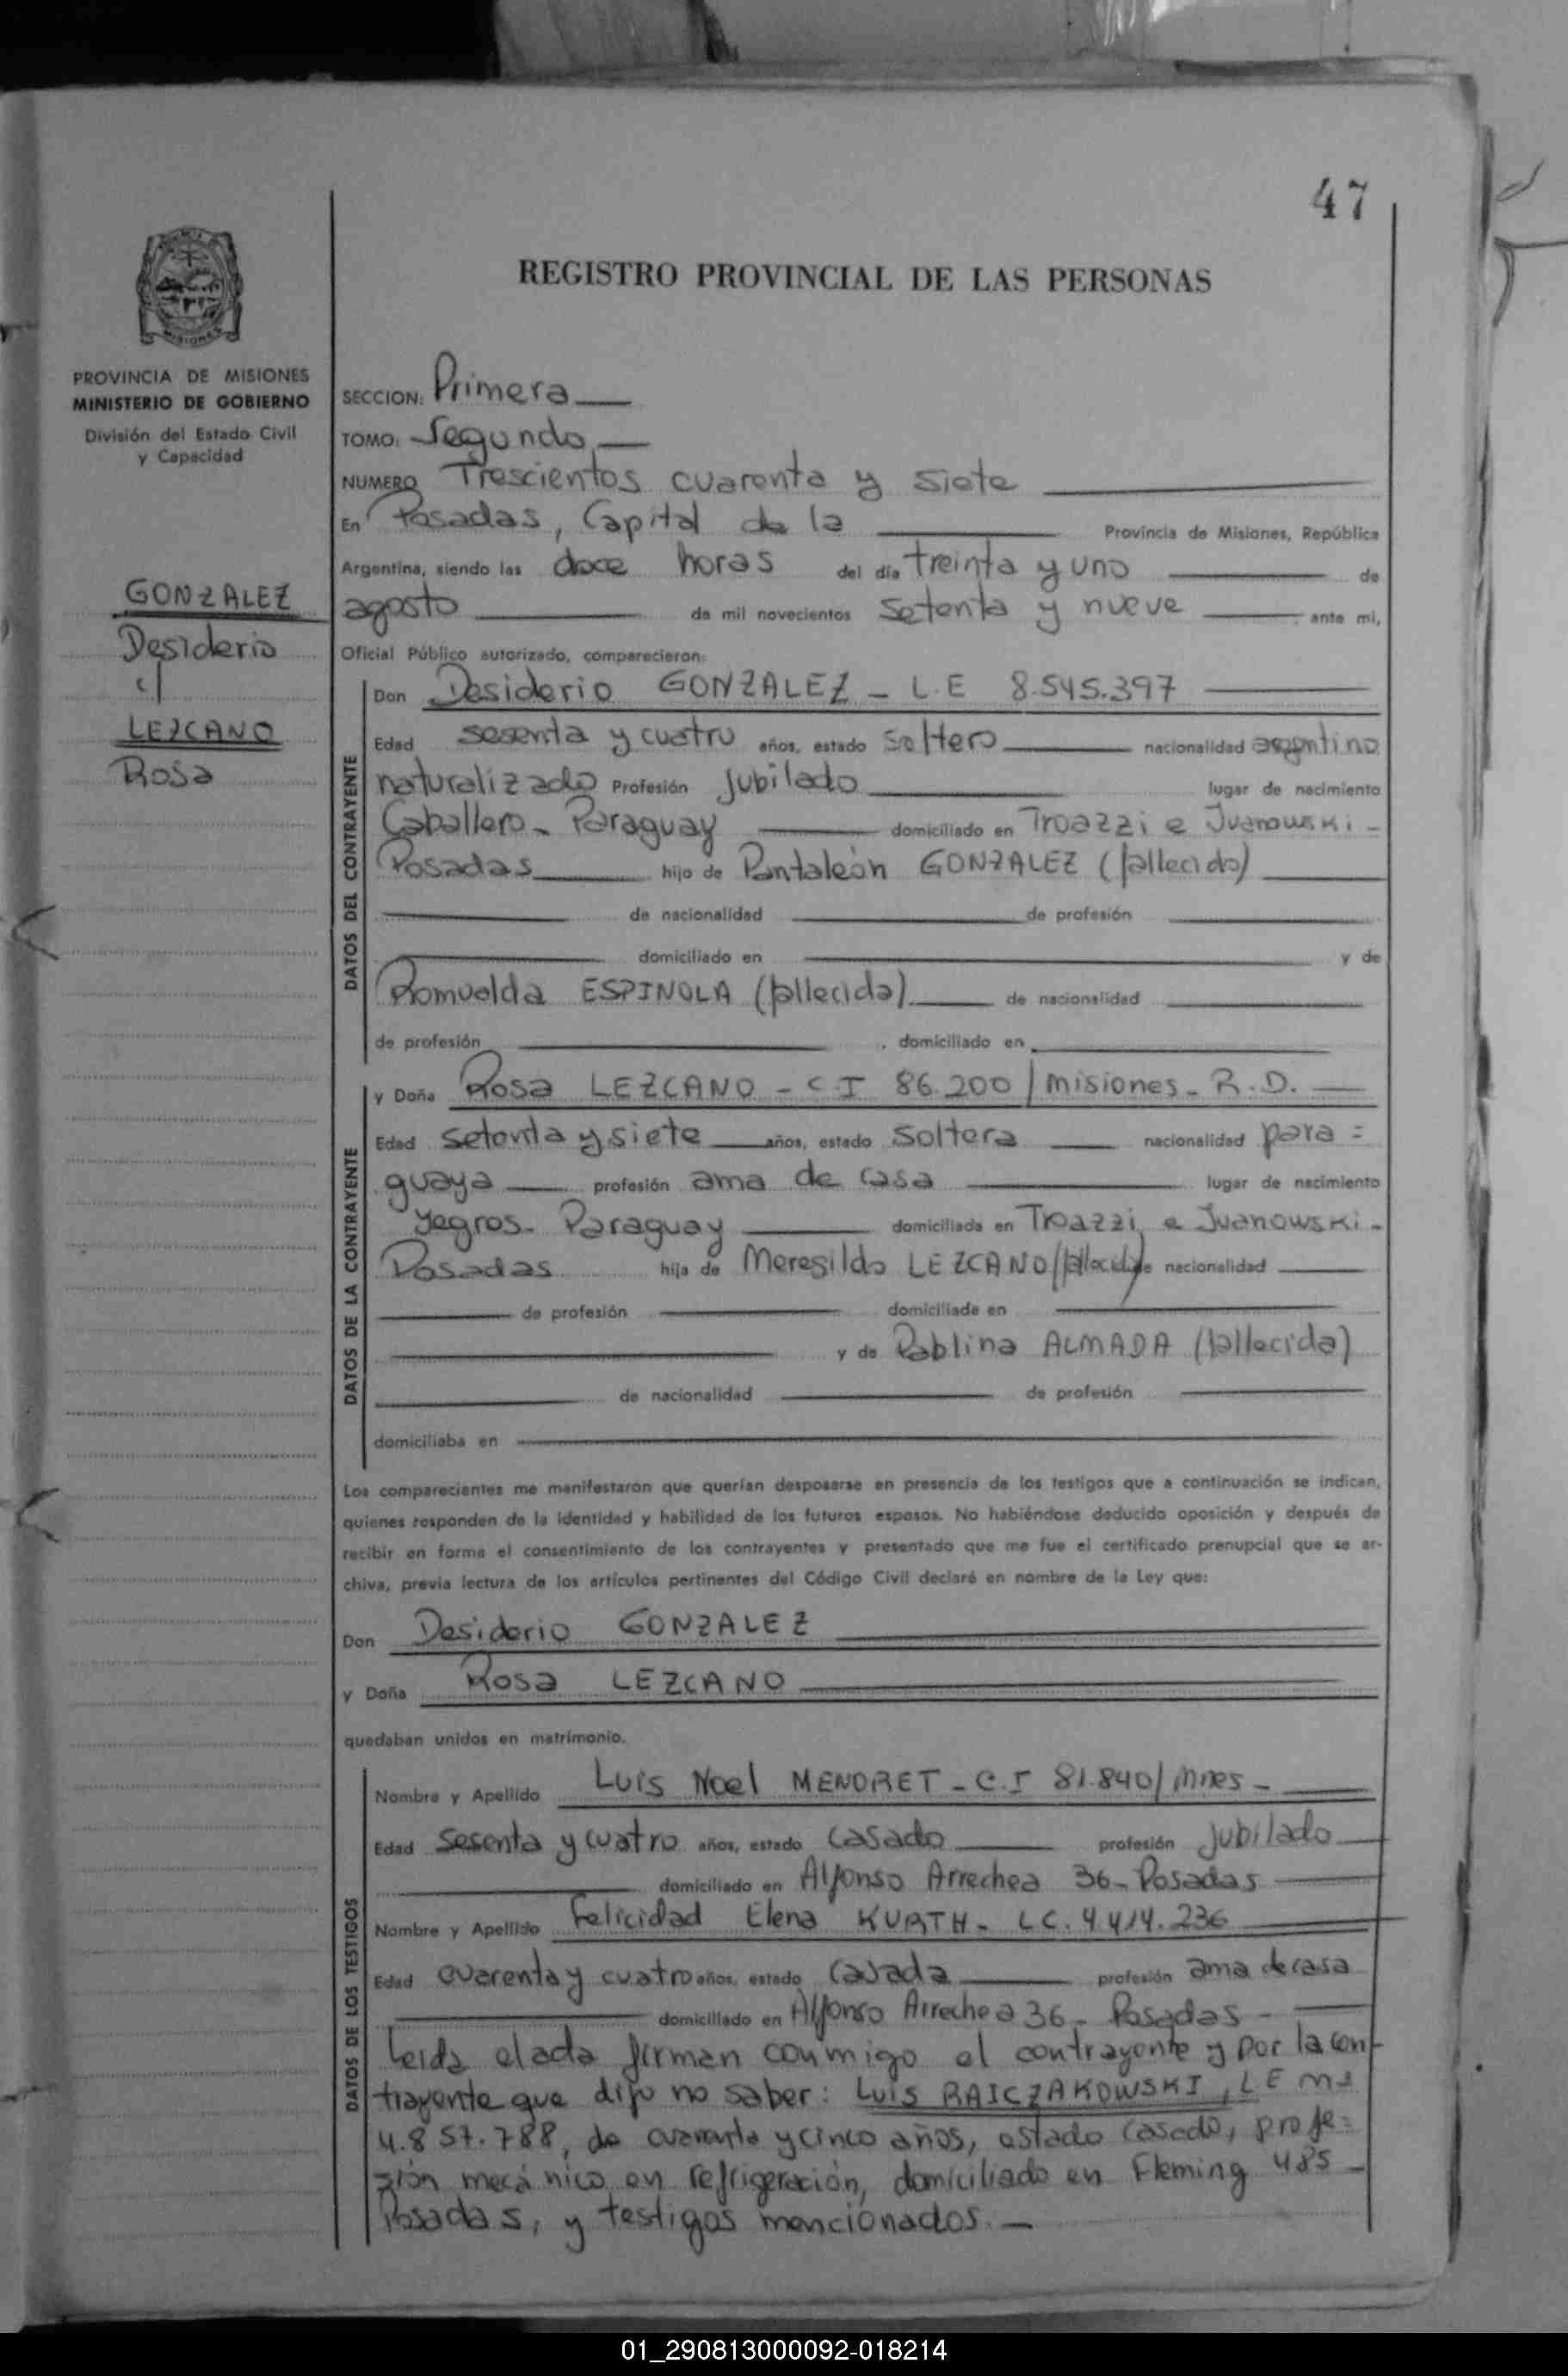 47
REGISTRO PROVINCIAL DE LAS PERSONAS
MISIONES
PROVINCIA DE MISIONES
MINISTERIO DE GOBIERNO
División del Estado Civil
y Capacidad
GONZALEZ
Desiderio
c/
LEZCANO
Rosa
SECCION: Primera
TOMO: Segundo
NUMERO Trescientos cuarenta y siete
En Posadas, Capital de la Provincia de Misiones, República
Argentina, siendo las doce horas del día treinta y uno de
agosto de mil novecientos setenta y nueve ante mi,
Oficial Público autorizado, comparecieron:
DATOS DEL CONTRAYENTE
Don Desiderio GONZALEZ - L.E 8.545.397
Edad sesenta y cuatro años, estado soltero nacionalidad argentino
naturalizado Profesión jubilado lugar de nacimiento
Caballero - Paraguay domiciliado en Troazzi e Ivanowski -
Posadas hijo de Pantaleón GONZALEZ (fallecido)
de nacionalidad de profesión
domiciliado en y de
Romualda ESPINOLA (fallecida) de nacionalidad
de profesión , domiciliado en
DATOS DE LA CONTRAYENTE
y Doña Rosa LEZCANO - C I 86.200/misiones - R.D.
Edad setenta y siete años, estado soltera nacionalidad para=
guaya profesión ama de casa lugar de nacimiento
Yegros - Paraguay domiciliada en Troazzi e Ivanowski -
Posadas hija de Meregildo LEZCANO (fallecido) de nacionalidad
de profesión domiciliada en
y de Pablina ALMADA (fallecida)
de nacionalidad de profesión
domiciliaba en
Los comparecientes me manifestaron que querían desposarse en presencia de los testigos que a continuación se indican,
quienes responden de la identidad y habilidad de los futuros esposos. No habiéndose deducido oposición y después de
recibir en forma el consentimiento de los contrayentes y presentado que me fue el certificado prenupcial que se ar-
chiva, previa lectura de los artículos pertinentes del Código Civil declaré en nombre de la Ley que:
Don Desiderio GONZALEZ
y Doña Rosa LEZCANO
quedaban unidos en matrimonio.
DATOS DE LOS TESTIGOS
Nombre y Apellido Luis Noel MENDRET - C.I 81.840/mnes -
Edad sesenta y cuatro años, estado casado profesión jubilado
domiciliado en Alfonso Arrechea 36 - Posadas
Nombre y Apellido Felicidad Elena KURTH - LC. 4.414.236
Edad cuarenta y cuatro años, estado casada profesión ama de casa
domiciliado en Alfonso Arrechea 36 - Posadas -
Leida el acta firman conmigo el contrayente y por la con-
trayente que dijo no saber: Luis RAICZAKOWSKI, LE nº
4.857.788, de cuarenta y cinco años, estado casado, profe=
sión mecánico en refrigeración, domiciliado en Fleming 485 -
Posadas, y testigos mencionados. -
01_290813000092-018214